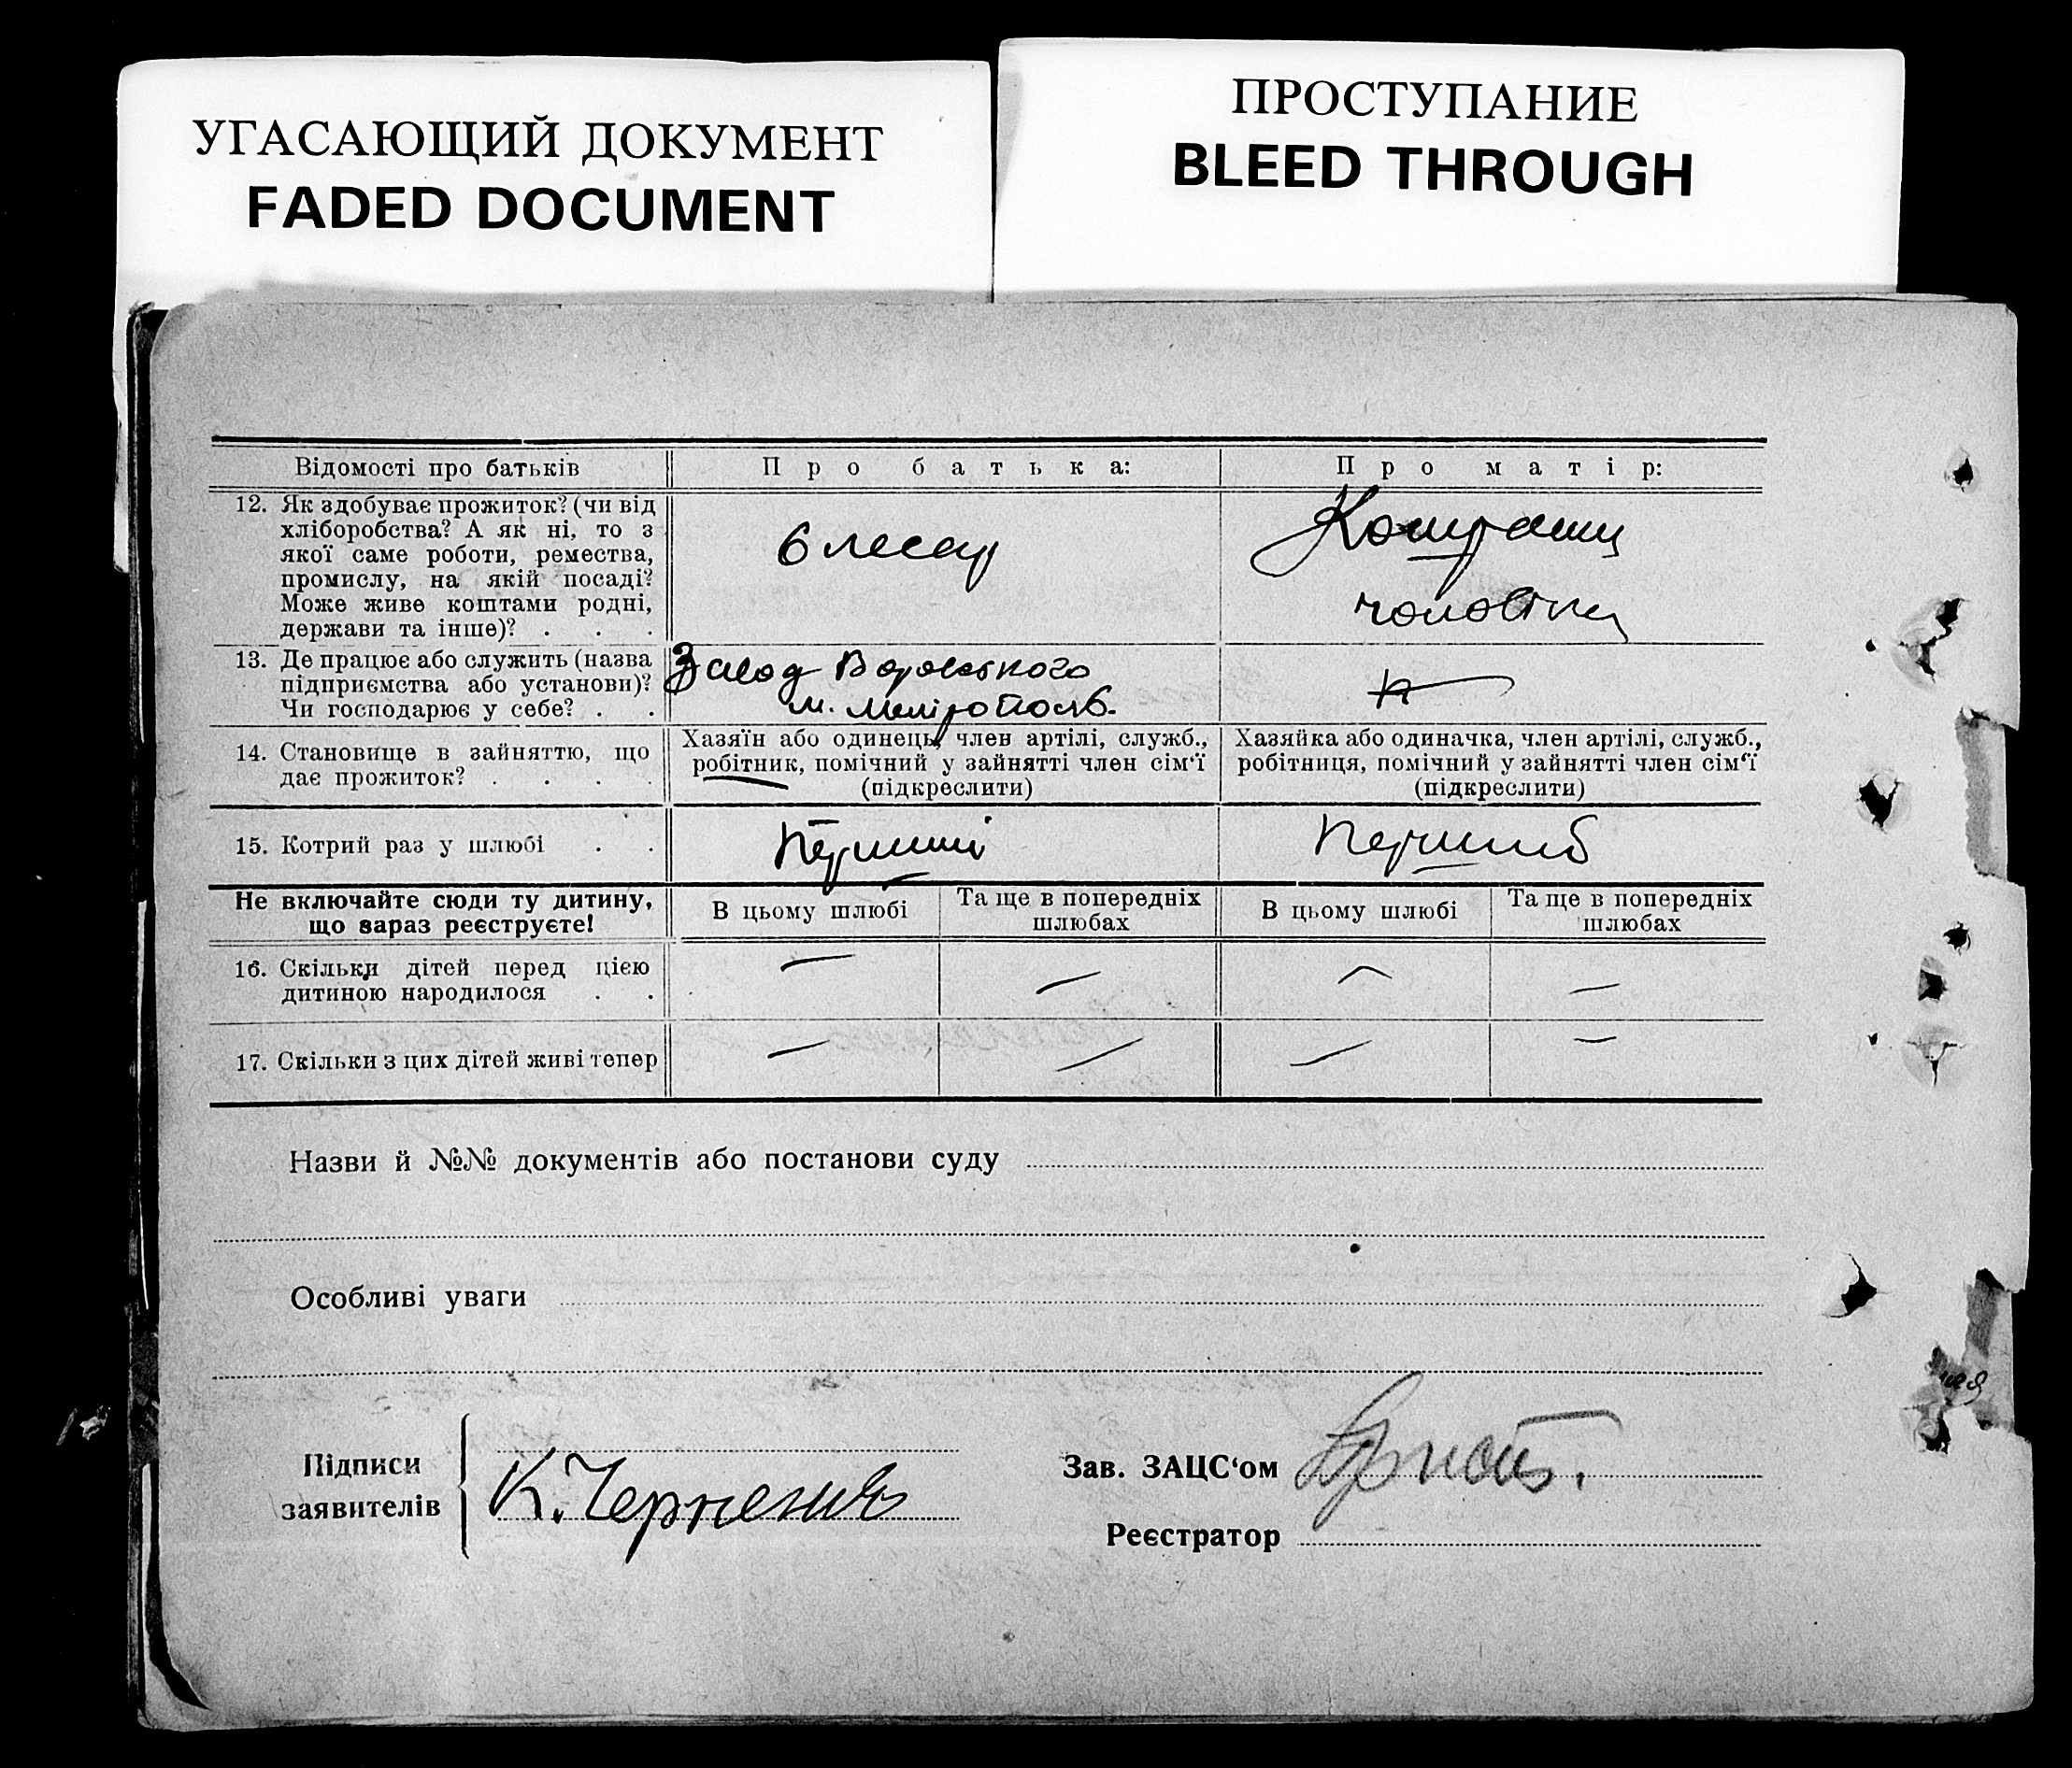 УГАСАЮЩИЙ ДОКУМЕНТ
FADED DOCUMENT
ПРОСТУПАНИЕ
BLEED THROUGH
Відомості про батьків
Про батька:
Про матір:
12. Як здобуває прожиток? (чи від
хліборобства? А як ні, то з
якої саме роботи, ремества,
промислу, на якій посаді?
Може живе коштами родні,
держави та інше)? . . .
слесар
Коштами
чоловіка
13. Де працює або служить (назва
підприємства або установи)?
Чи господарює у себе? . .
Завод Воровського
м. Меліtополь
14. Становище в зайняттю, що
дає прожиток? . . . .
Хазяїн або одинець, член артілі, служб.,
робітник, помічний у зайнятті член сім'ї
(підкреслити)
Хазяйка або одиначка, член артілі, служб.,
робітниця, помічний у зайнятті член сім'ї
(підкреслити)
15. Котрий раз у шлюбі . .
Перший
Перший
Не включайте сюди ту дитину,
що зараз реєструєте!
В цьому шлюбі
Та ще в попередніх
шлюбах
В цьому шлюбі
Та ще в попередніх
шлюбах
16. Скільки дітей перед цією
дитиною народилося . .
— — — —
17. Скільки з цих дітей живі тепер
— — — —
Назви й №№ документів або постанови суду
Особливі уваги
Підписи
заявителів
К. Черненко
Зав. ЗАЦС'ом
Реєстратор